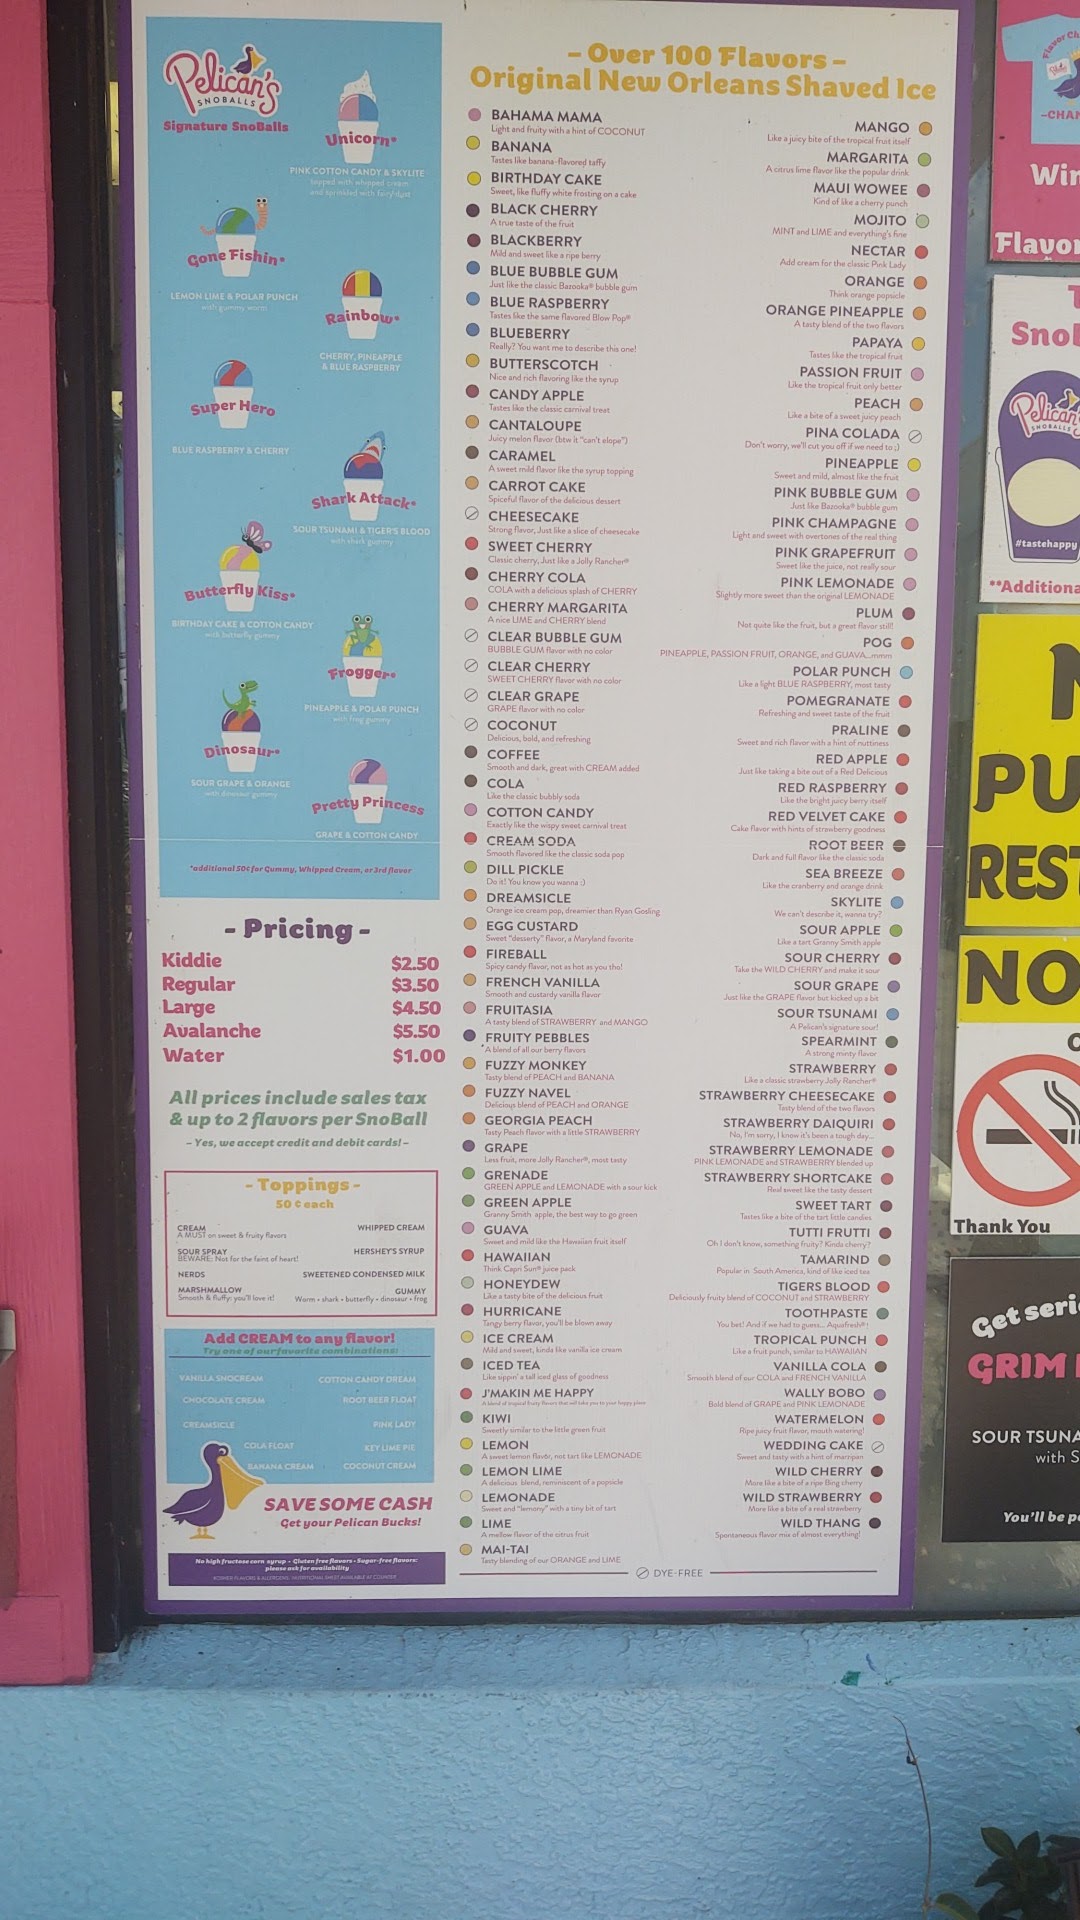 Pelican's
SNOBALLS
Signature SnoBalls
Unicorn*
PINK COTTON CANDY & SKYLITE
topped with whipped cream
and sprinkled with fairy dust
Gone Fishin*
LEMON LIME & POLAR PUNCH
with gummy worm
Rainbow*
CHERRY, PINEAPPLE
& BLUE RASPBERRY
Super Hero
BLUE RASPBERRY & CHERRY
Shark Attack*
SOUR TSUNAMI & TIGER'S BLOOD
with shark gummy
Butterfly Kiss*
BIRTHDAY CAKE & COTTON CANDY
with butterfly gummy
Frogger*
PINEAPPLE & POLAR PUNCH
with frog gummy
Dinosaur*
SOUR GRAPE & ORANGE
with dinosaur gummy
Pretty Princess
GRAPE & COTTON CANDY
*additional 50¢ for Gummy, Whipped Cream, or 3rd flavor
- Pricing -
Kiddie $2.50
Regular $3.50
Large $4.50
Avalanche $5.50
Water $1.00
All prices include sales tax
& up to 2 flavors per SnoBall
- Yes, we accept credit and debit cards! -
- Toppings -
50 ¢ each
CREAM
A MUST on sweet & fruity flavors
SOUR SPRAY
BEWARE: Not for the faint of heart!
NERDS
MARSHMALLOW
Smooth & fluffy: you'll love it!
WHIPPED CREAM
HERSHEY'S SYRUP
SWEETENED CONDENSED MILK
GUMMY
Worm • shark • butterfly • dinosaur • frog
Add CREAM to any flavor!
Try one of our favorite combinations!
VANILLA SNOCREAM
COTTON CANDY DREAM
CHOCOLATE CREAM
ROOT BEER FLOAT
CREAMSICLE
PINK LADY
COLA FLOAT
KEY LIME PIE
BANANA CREAM
COCONUT CREAM
SAVE SOME CASH
Get your Pelican Bucks!
No high fructose corn syrup - Gluten free flavors - Sugar-free flavors:
please ask for availability
KOSHER FLAVORS & ALLERGENS: NUTRITIONAL SHEET AVAILABLE AT COUNTER
- Over 100 Flavors -
Original New Orleans Shaved Ice
BAHAMA MAMA
Light and fruity with a hint of COCONUT
BANANA
Tastes like banana-flavored taffy
BIRTHDAY CAKE
Sweet, like fluffy white frosting on a cake
BLACK CHERRY
A true taste of the fruit
BLACKBERRY
Mild and sweet like a ripe berry
BLUE BUBBLE GUM
Just like the classic Bazooka® bubble gum
BLUE RASPBERRY
Tastes like the same flavored Blow Pop®
BLUEBERRY
Really? You want me to describe this one!
BUTTERSCOTCH
Nice and rich flavoring like the syrup
CANDY APPLE
Tastes like the classic carnival treat
CANTALOUPE
Juicy melon flavor (btw it "can't elope")
CARAMEL
A sweet mild flavor like the syrup topping
CARROT CAKE
Spiceful flavor of the delicious dessert
CHEESECAKE
Strong flavor, Just like a slice of cheesecake
SWEET CHERRY
Classic cherry, Just like a Jolly Rancher®
CHERRY COLA
COLA with a delicious splash of CHERRY
CHERRY MARGARITA
A nice LIME and CHERRY blend
CLEAR BUBBLE GUM
BUBBLE GUM flavor with no color
CLEAR CHERRY
SWEET CHERRY flavor with no color
CLEAR GRAPE
GRAPE flavor with no color
COCONUT
Delicious, bold, and refreshing
COFFEE
Smooth and dark, great with CREAM added
COLA
Like the classic bubbly soda
COTTON CANDY
Exactly like the wispy sweet carnival treat
CREAM SODA
Smooth flavored like the classic soda pop
DILL PICKLE
Do it! You know you wanna :)
DREAMSICLE
Orange ice cream pop, dreamier than Ryan Gosling
EGG CUSTARD
Sweet "desserty" flavor, a Maryland favorite
FIREBALL
Spicy candy flavor, not as hot as you tho!
FRENCH VANILLA
Smooth and custardy vanilla flavor
FRUITASIA
A tasty blend of STRAWBERRY and MANGO
FRUITY PEBBLES
A blend of all our berry flavors
FUZZY MONKEY
Tasty blend of PEACH and BANANA
FUZZY NAVEL
Delicious blend of PEACH and ORANGE
GEORGIA PEACH
Tasty Peach flavor with a little STRAWBERRY
GRAPE
Less fruit, more Jolly Rancher®, most tasty
GRENADE
GREEN APPLE and LEMONADE with a sour kick
GREEN APPLE
Granny Smith apple, the best way to go green
GUAVA
Sweet and mild like the Hawaiian fruit itself
HAWAIIAN
Think Capri Sun® juice pack
HONEYDEW
Like a tasty bite of the delicious fruit
HURRICANE
Tangy berry flavor, you'll be blown away
ICE CREAM
Mild and sweet, kinda like vanilla ice cream
ICED TEA
Like sippin' a tall iced glass of goodness
J'MAKIN ME HAPPY
A blend of tropical fruity flavors that will take you to your happy place
KIWI
Sweetly similar to the little green fruit
LEMON
A sweet lemon flavor, not tart like LEMONADE
LEMON LIME
A delicious blend, reminiscent of a popsicle
LEMONADE
Sweet and "lemony" with a tiny bit of tart
LIME
A mellow flavor of the citrus fruit
MAI-TAI
Tasty blending of our ORANGE and LIME
MANGO
Like a juicy bite of the tropical fruit itself
MARGARITA
A citrus lime flavor like the popular drink
MAUI WOWEE
Kind of like a cherry punch
MOJITO
MINT and LIME and everything's fine
NECTAR
Add cream for the classic Pink Lady
ORANGE
Think orange popsicle
ORANGE PINEAPPLE
A tasty blend of the two flavors
PAPAYA
Tastes like the tropical fruit
PASSION FRUIT
Like the tropical fruit only better
PEACH
Like a bite of a sweet juicy peach
PINA COLADA
Don't worry, we'll cut you off if we need to ;)
PINEAPPLE
Sweet and mild, almost like the fruit
PINK BUBBLE GUM
Just like Bazooka® bubble gum
PINK CHAMPAGNE
Light and sweet with overtones of the real thing
PINK GRAPEFRUIT
Sweet like the juice, not really sour
PINK LEMONADE
Slightly more sweet than the original LEMONADE
PLUM
Not quite like the fruit, but a great flavor still!
POG
PINEAPPLE, PASSION FRUIT, ORANGE, and GUAVA...mmm
POLAR PUNCH
Like a light BLUE RASPBERRY, most tasty
POMEGRANATE
Refreshing and sweet taste of the fruit
PRALINE
Sweet and rich flavor with a hint of nuttiness
RED APPLE
Just like taking a bite out of a Red Delicious
RED RASPBERRY
Like the bright juicy berry itself
RED VELVET CAKE
Cake flavor with hints of strawberry goodness
ROOT BEER
Dark and full flavor like the classic soda
SEA BREEZE
Like the cranberry and orange drink
SKYLITE
We can't describe it, wanna try?
SOUR APPLE
Like a tart Granny Smith apple
SOUR CHERRY
Take the WILD CHERRY and make it sour
SOUR GRAPE
Just like the GRAPE flavor but kicked up a bit
SOUR TSUNAMI
A Pelican's signature sour!
SPEARMINT
A strong minty flavor
STRAWBERRY
Like a classic strawberry Jolly Rancher®
STRAWBERRY CHEESECAKE
Tasty blend of the two flavors
STRAWBERRY DAIQUIRI
No, I'm sorry, I know it's been a tough day...
STRAWBERRY LEMONADE
PINK LEMONADE and STRAWBERRY blended up
STRAWBERRY SHORTCAKE
Real sweet like the tasty dessert
SWEET TART
Tastes like a bite of the tart little candies
TUTTI FRUTTI
Oh I don't know, something fruity? Kinda cherry?
TAMARIND
Popular in South America, kind of like iced tea
TIGERS BLOOD
Deliciously fruity blend of COCONUT and STRAWBERRY
TOOTHPASTE
You bet! And if we had to guess... Aquafresh®!
TROPICAL PUNCH
Like a fruit punch, similar to HAWAIIAN
VANILLA COLA
Smooth blend of our COLA and FRENCH VANILLA
WALLY BOBO
Bold blend of GRAPE and PINK LEMONADE
WATERMELON
Ripe juicy fruit flavor, mouth watering!
WEDDING CAKE
Sweet and tasty with a hint of marzipan
WILD CHERRY
More like a bite of a ripe Bing cherry
WILD STRAWBERRY
More like a bite of a real strawberry
WILD THANG
Spontaneous flavor mix of almost everything!
DYE-FREE
Flavor Ch
-CHAM
Win
Flavor
T
Snol
Pelican
SNOBALLS
#tastehappy
**Additiona
N
PU
REST
NO
Thank You
Get seri
GRIM
SOUR TSUNA
with S
You'll be p